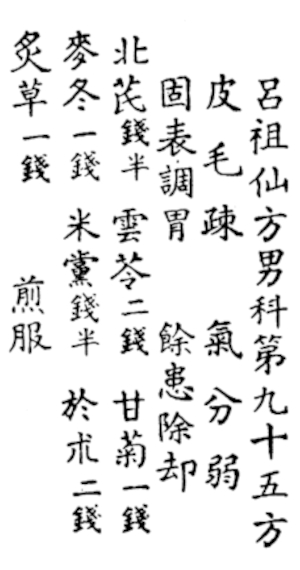 呂祖仙方男科第九十五方
皮毛疎　氣分弱
固表調胃　餘患除却
北芪錢半　雲苓二錢　甘菊一錢
麥冬一錢　米黨錢半　於朮二錢
炙草一錢　煎服